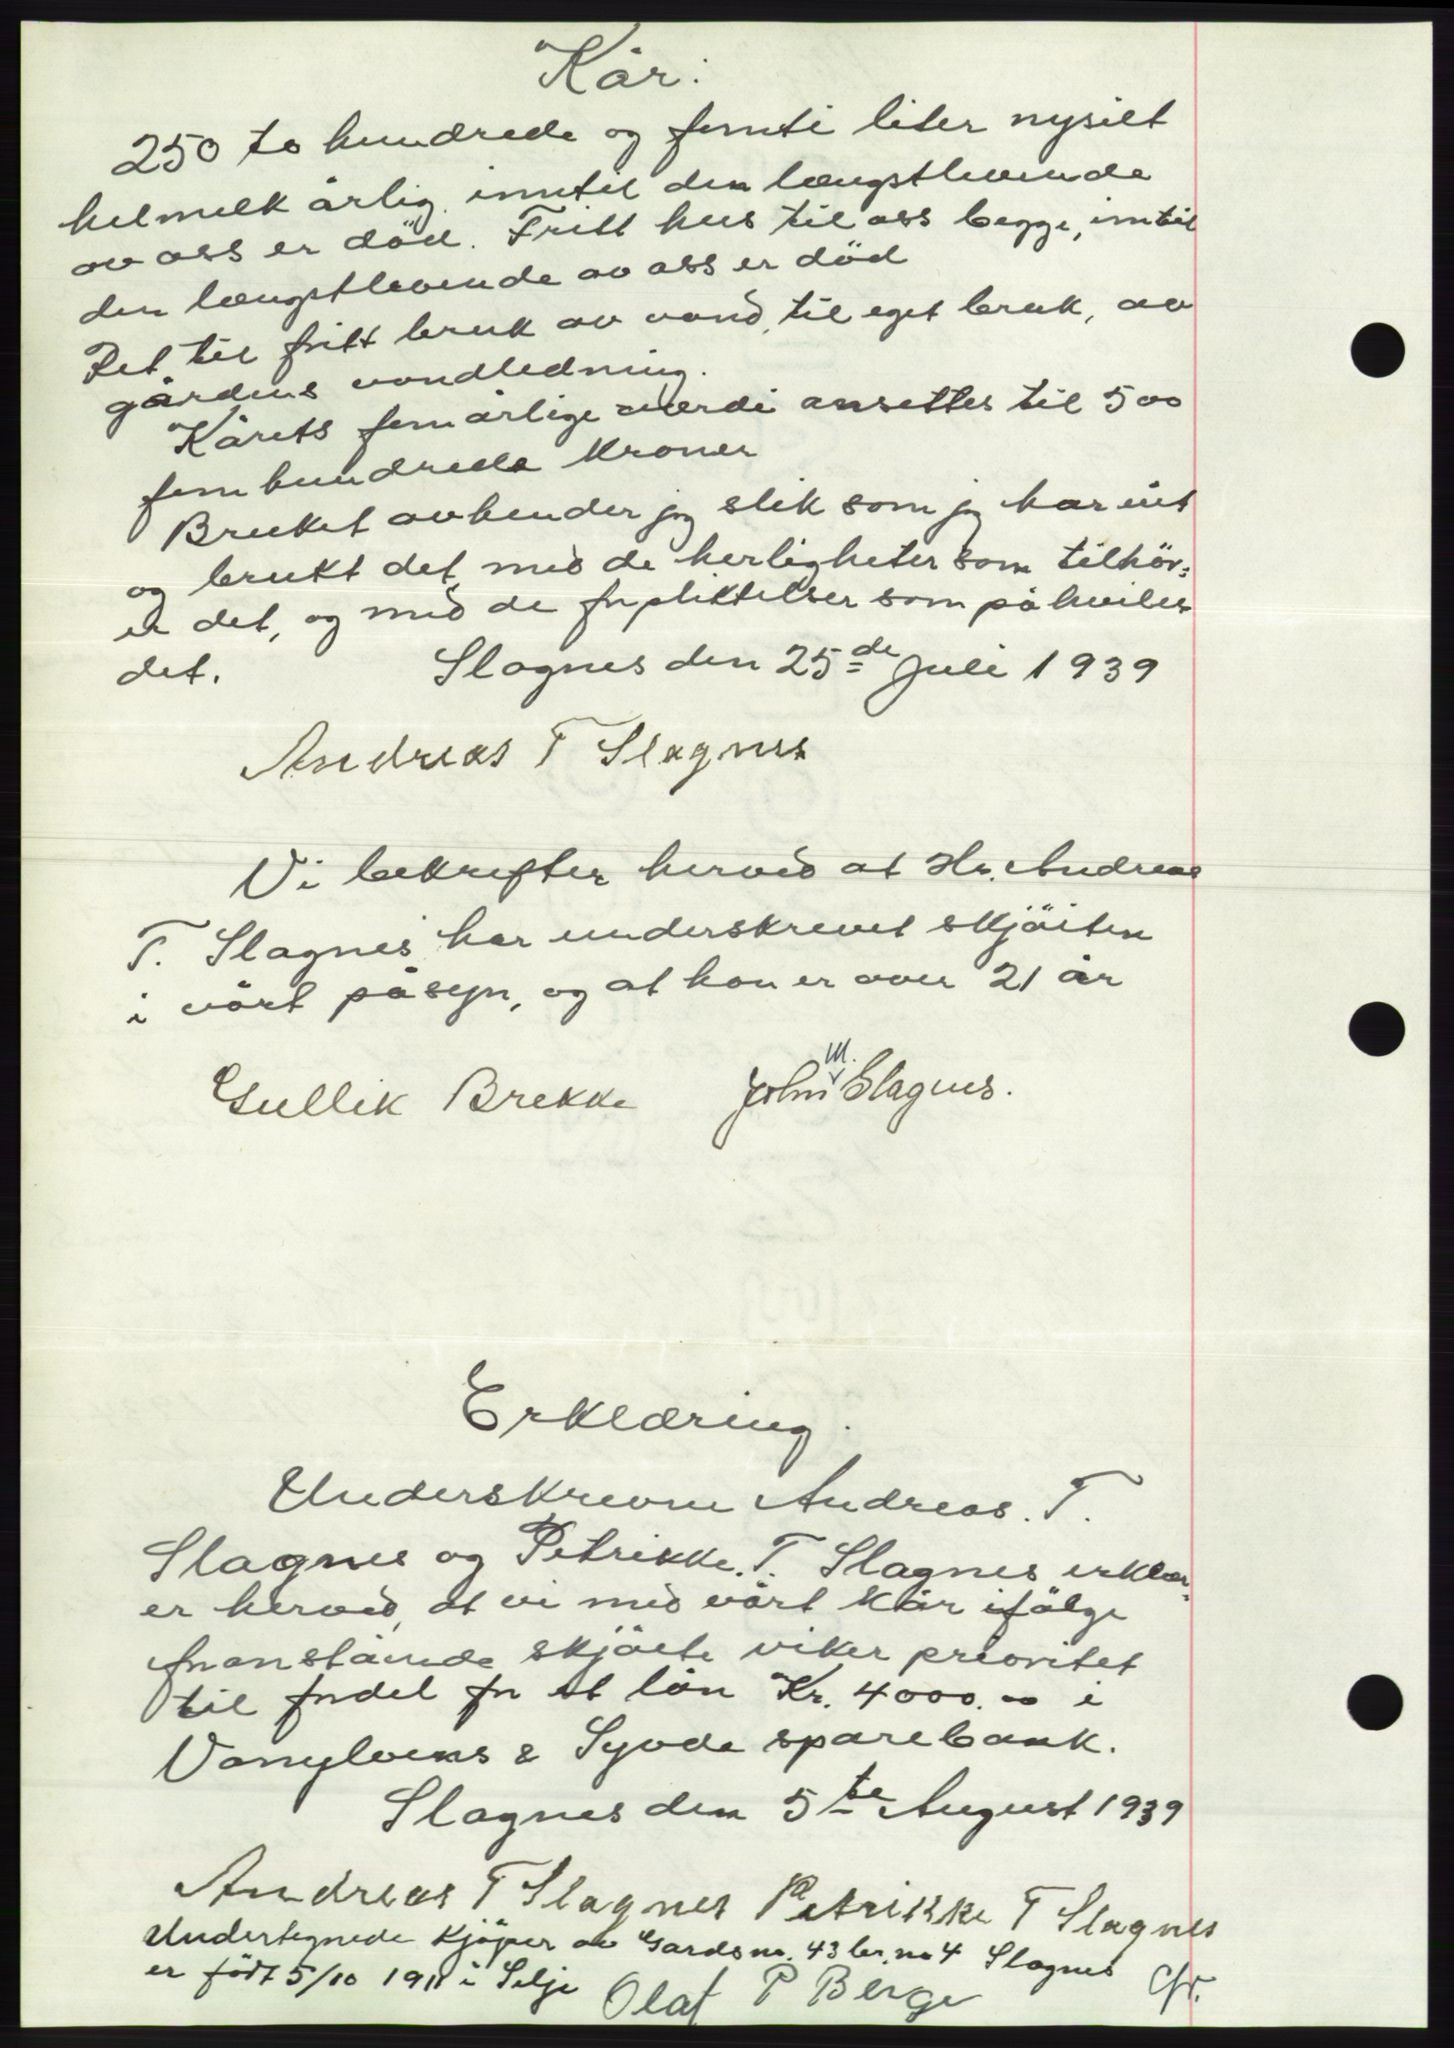 Kår:
250 to hundrede og femti liter nysilt
helmelk årlig inntil den længstlevende
av oss er död. Fritt hus til oss begge, inntil
den længstlevende av oss er död
Ret til fritt bruk av vand, til eget bruk, av
gårdens vandledning.
Kårets femårlige værdi ansettes til 500
fem hundrede kroner
Bruket avhender jeg slik som jeg har eiet
og brukt det, med de herligheter som tilhör-
er det, og med de forpliktelser som påhviler
det. Slagnes den 25de Juli 1939
Andreas T Slagnes
Vi bekrefter herved at Hr. Andreas
T. Slagnes har underskrevet skjöiten
i vårt påsyn, og at han er over 21 år
Gullik Brekke John M. Slagnes.
Erklæring.
Underskrevne Andreas. T.
Slagnes og Petrikke. T. Slagnes erklær-
er herved, at vi med vårt kår ifölge
foranstående skjöte viker prioritet
til fordel for et lån Kr. 4000.00 i
Vanylvens & Syvde sparebank.
Slagnes den 5te August 1939
Andreas T Slagnes Petrikke T Slagnes
Undertegnede kjöper av Gardsnr. 43 br. no 4 Slagnes
er födt 5/10 1911 i Selje Olaf P Berge